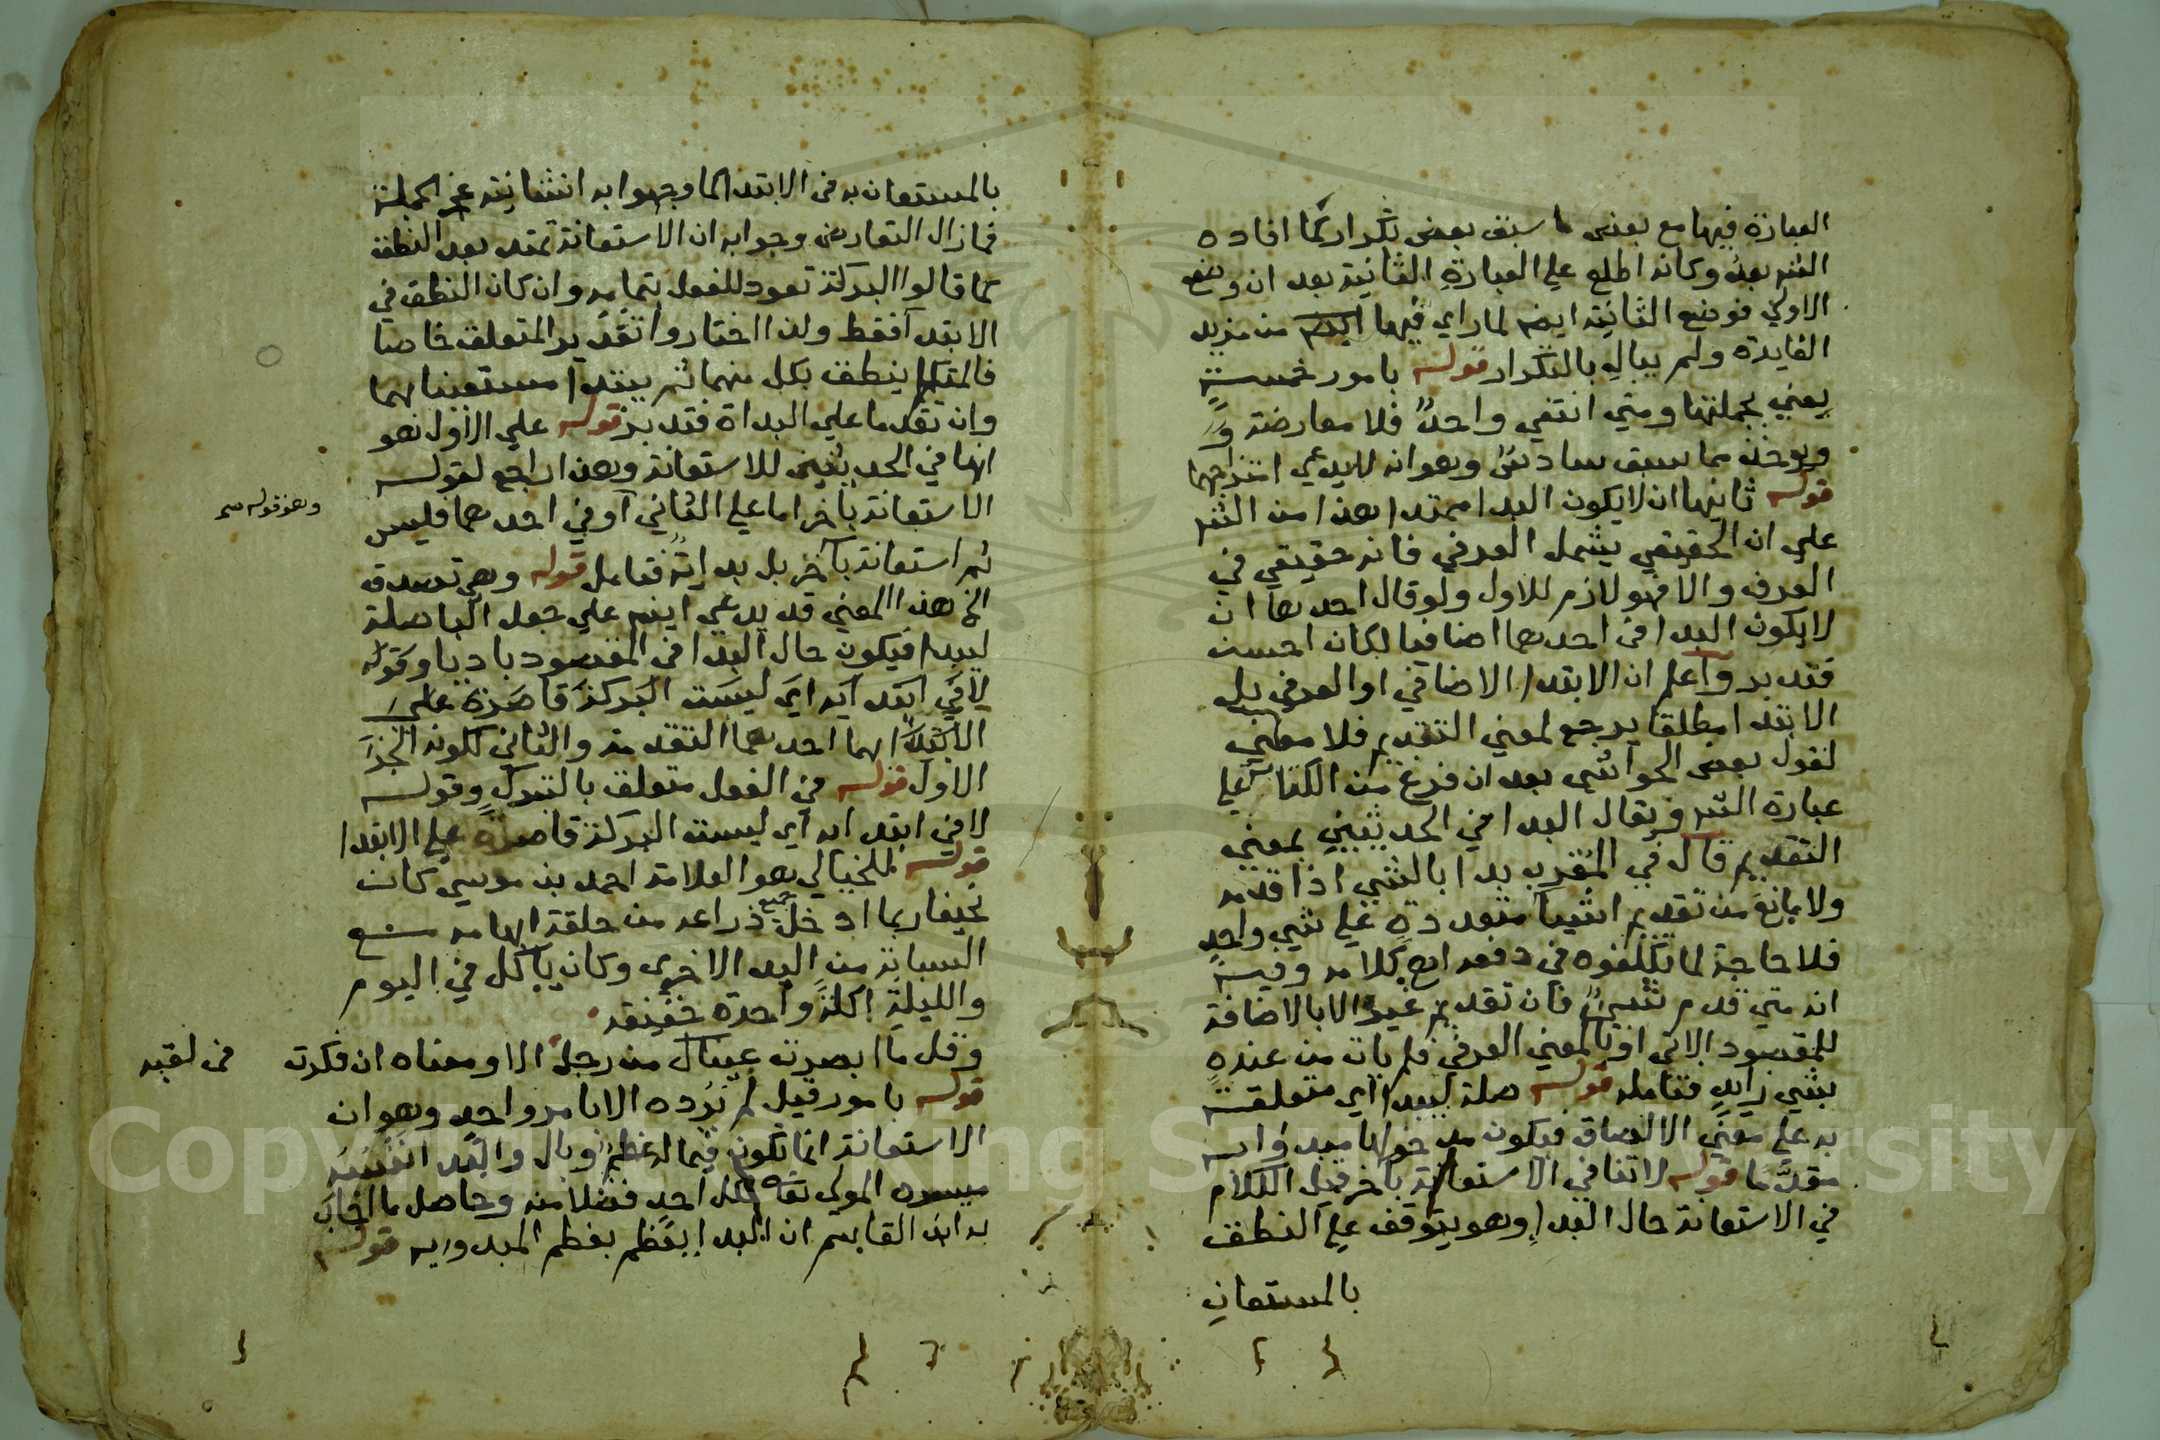 العبارة فيها مع بعض ما سبق بعض تكرار كما افاده
الشر بعد وكانه اطلع علي العبارة الثانية بعد ان وضع
الاولي فوضع الثانية ايضم لما راي فيها ايضم من مزيد
الفايدة ولم يبال بالتكرار قوله بامور خمسة
يعني بجملتها ومتي انتفي واحد فلا معارضة و
ويوخذ مما سبق سادس وهو انه
قوله ثانيها ان لايكون البدا ممتدا هذا من الشر
علي ان الحقيقي يشمل العرفي فانه حقيقي في
العرف والا فهو لازم للاول ولو قال احدهما ان
لايكون البدا في احدهما اضافيا لكان احسن
فتدبر واعلم ان الابتدا الاضافي او العرفي بل
الابتدا مطلقا يرجع لمعني التقديم فلا معني
لقول بعض الحواشي بعد ان فرغ من الكلام علي
عبارة الشر ويقال البدا في الحديثين بمعني
التقديم قال في المغرب بدا بالشي اذا قدمه
ولا مانع من تقديم اشيا متعددة علي شي واحد
فلا حاجة لما تكلفوه في دفعه اهـ كلامه وفيه
انه متي قدم شي فان تقديم غيره الا بالاضافة
للمقصود الاتي او بالمعني العرفي فلم يات من عنده
بشي زايد فتامله قوله صلة ليبدا اي متعلقة
به علي معني الالصاق فيكون مدخولها مبدوا به
مقدما قوله لا تنافي الاستعانة باخر قيل الكلام
في الاستعانة حال البدا وهو يتوقف علي النطق
بالمستعان
بالمستعان به في الابتدا كما وجهوا به انشائية عجز الجملة
فما زال التعارض وجوابه ان الاستعانة تمتد بعد النطق
كما قالوا البركة تعود للفعل بتمامه وان كان النطق في
الابتدا فقط ولذا اختاروا تقدير المتعلق خاصا
فالمتكلم ينطق بكل منهما ثم يبتدا مستعينا بهما
وان تقدما علي البداة فتدبر قوله علي الاول نعو
انها في الحديثين للاستعانة وهذا راجع لقوله
الاستعانة باخر اما علي الثاني او في احدهما فليس
وهو قوله
ثم استعانة باخر بل بداية فتامل قوله وهي تصدق
الخ هذا المعني قد يدعي ايضم علي جعل الباصلة
ليبدا فيكون حال البدا في المقصود باديا وقوله
لا في ابتدايه اي ليست البركة قاصرة علي
الابتدا بهما احدهما التقدمة والثاني ككونه الجزء
الاول قوله في الفعل متعلق بالتبرك وقوله
لا في ابتدايه اي ليست البركة قاصرة علي الابتدا
قوله للخيالي هو العلامة احمد بن موسي كان
نحيفا ربما ادخل جميع ذراعه من حلقة ابهامه مع
السبابة من اليد الاخري وكان ياكل في اليوم
والليلة اكلة واحدة خفيفة
وقل ما ابصرت عيناك من رجل الا ومعناه ان فكرت
في لقبه
قوله بامور قيل لم نرده الا بامر واحد وهو ان
الاستعانة انما تكون فيما له عظم وبال والبدا نفسه
ميسره المولي تعالي لكل احد فضلا منه وحاصل ما اجاب
به ابن القاسم ان البدا يعظم بعظم المبدو به قوله